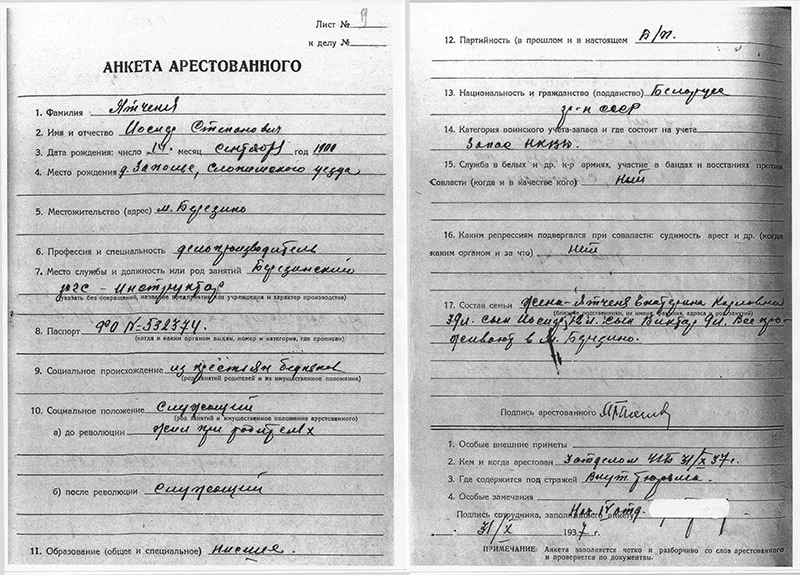 Лист № 9
к делу №
АНКЕТА АРЕСТОВАННОГО
1. Фамилия Ятченя
2. Имя и отчество Иосиф Степанович
3. Дата рождения: число 14 месяц сентября год 1900
4. Место рождения д. Заполье, уезда
5. Местожительство (адрес) м. Березино
6. Профессия и специальность делопроизводитель
7. Место службы и должность или род занятий Березинский
– инструктор
(указать без сокращений, название предприятия или учреждения и характер производства)
8. Паспорт ФО № 532374.
(когда и каким органом выдан, номер и категория, где прописан)
9. Социальное происхождение из крестьян бедняков
(род занятий родителей и их имущественное положение)
10. Социальное положение служащий
(род занятий и имущественное положение арестованного)
а) до революции жил при родителях
б) после революции служащий
11. Образование (общее и специальное) низшее.
12. Партийность (в прошлом и в настоящем Б/п.
13. Национальность и гражданство (подданство) Белорус
гр-н СССР
14. Категория воинского учета-запаса и где состоит на учете
Запас НКВД.
15. Служба в белых и др. к-р армиях, участие в бандах и восстаниях против
Совласти (когда и в качестве кого) Нет
16. Каким репрессиям подвергался при совласти: судимость арест и др. (когда
каким органом и за что) Нет
17. Состав семьи Жена – Ятченя Екатерина Карловна
(близкие родственники, их имена, фамилия, адреса и род занятий)
39 л. сын Иосиф 12 л. сын Виктор 9 л. Все про-
живают в м. Березино.
Подпись арестованного
1. Особые внешние приметы
2. Кем и когда арестован 31/X 37 г.
3. Где содержится под стражей Внут. тюрьма.
4. Особые замечания
Подпись сотрудника, заполнившего анкету Нач. IV отд.
„ 31/X 1937 г.
ПРИМЕЧАНИЕ: Анкета заполняется четко и разборчиво со слов арестованного
и проверяется по документам.